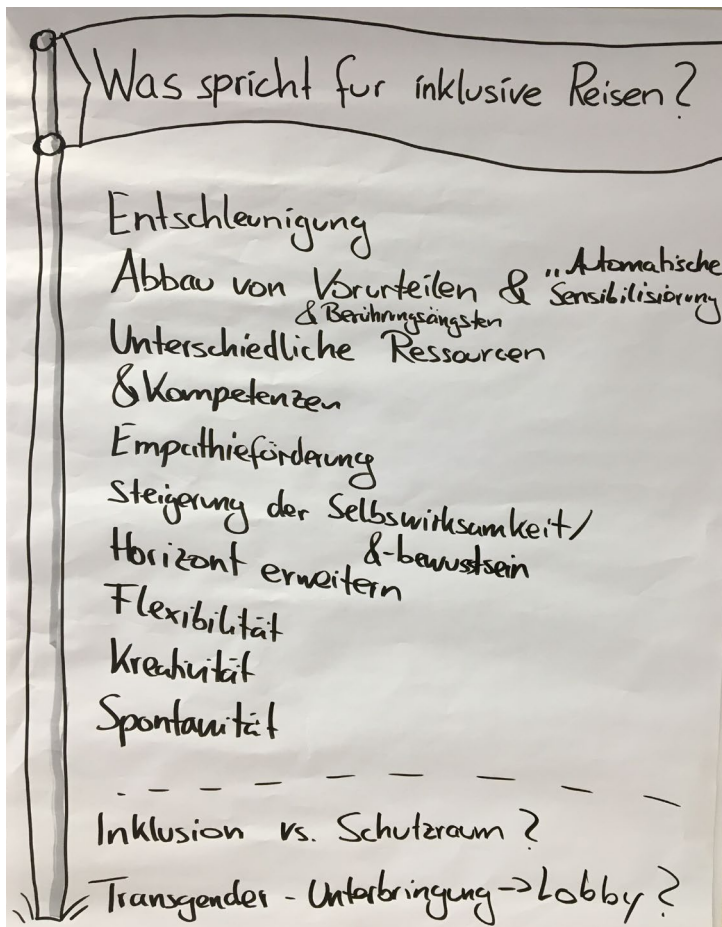 Was spricht fur inklusive Reisen?
Entschleunigung
Abbau von Vorurteilen & "Automatische
& Berührungsängsten Sensibilisiörung
Unterschiedliche Ressourcen
& Kompetenzen
Empathieförderung
Steigerung der Selbswirksamkeit/
&-bewusstsein
Horizont erweitern
Flexibilität
Kreativität
Spontanität
Inklusion vs. Schutzraum?
Transgender - Unterbringung -> Lobby?